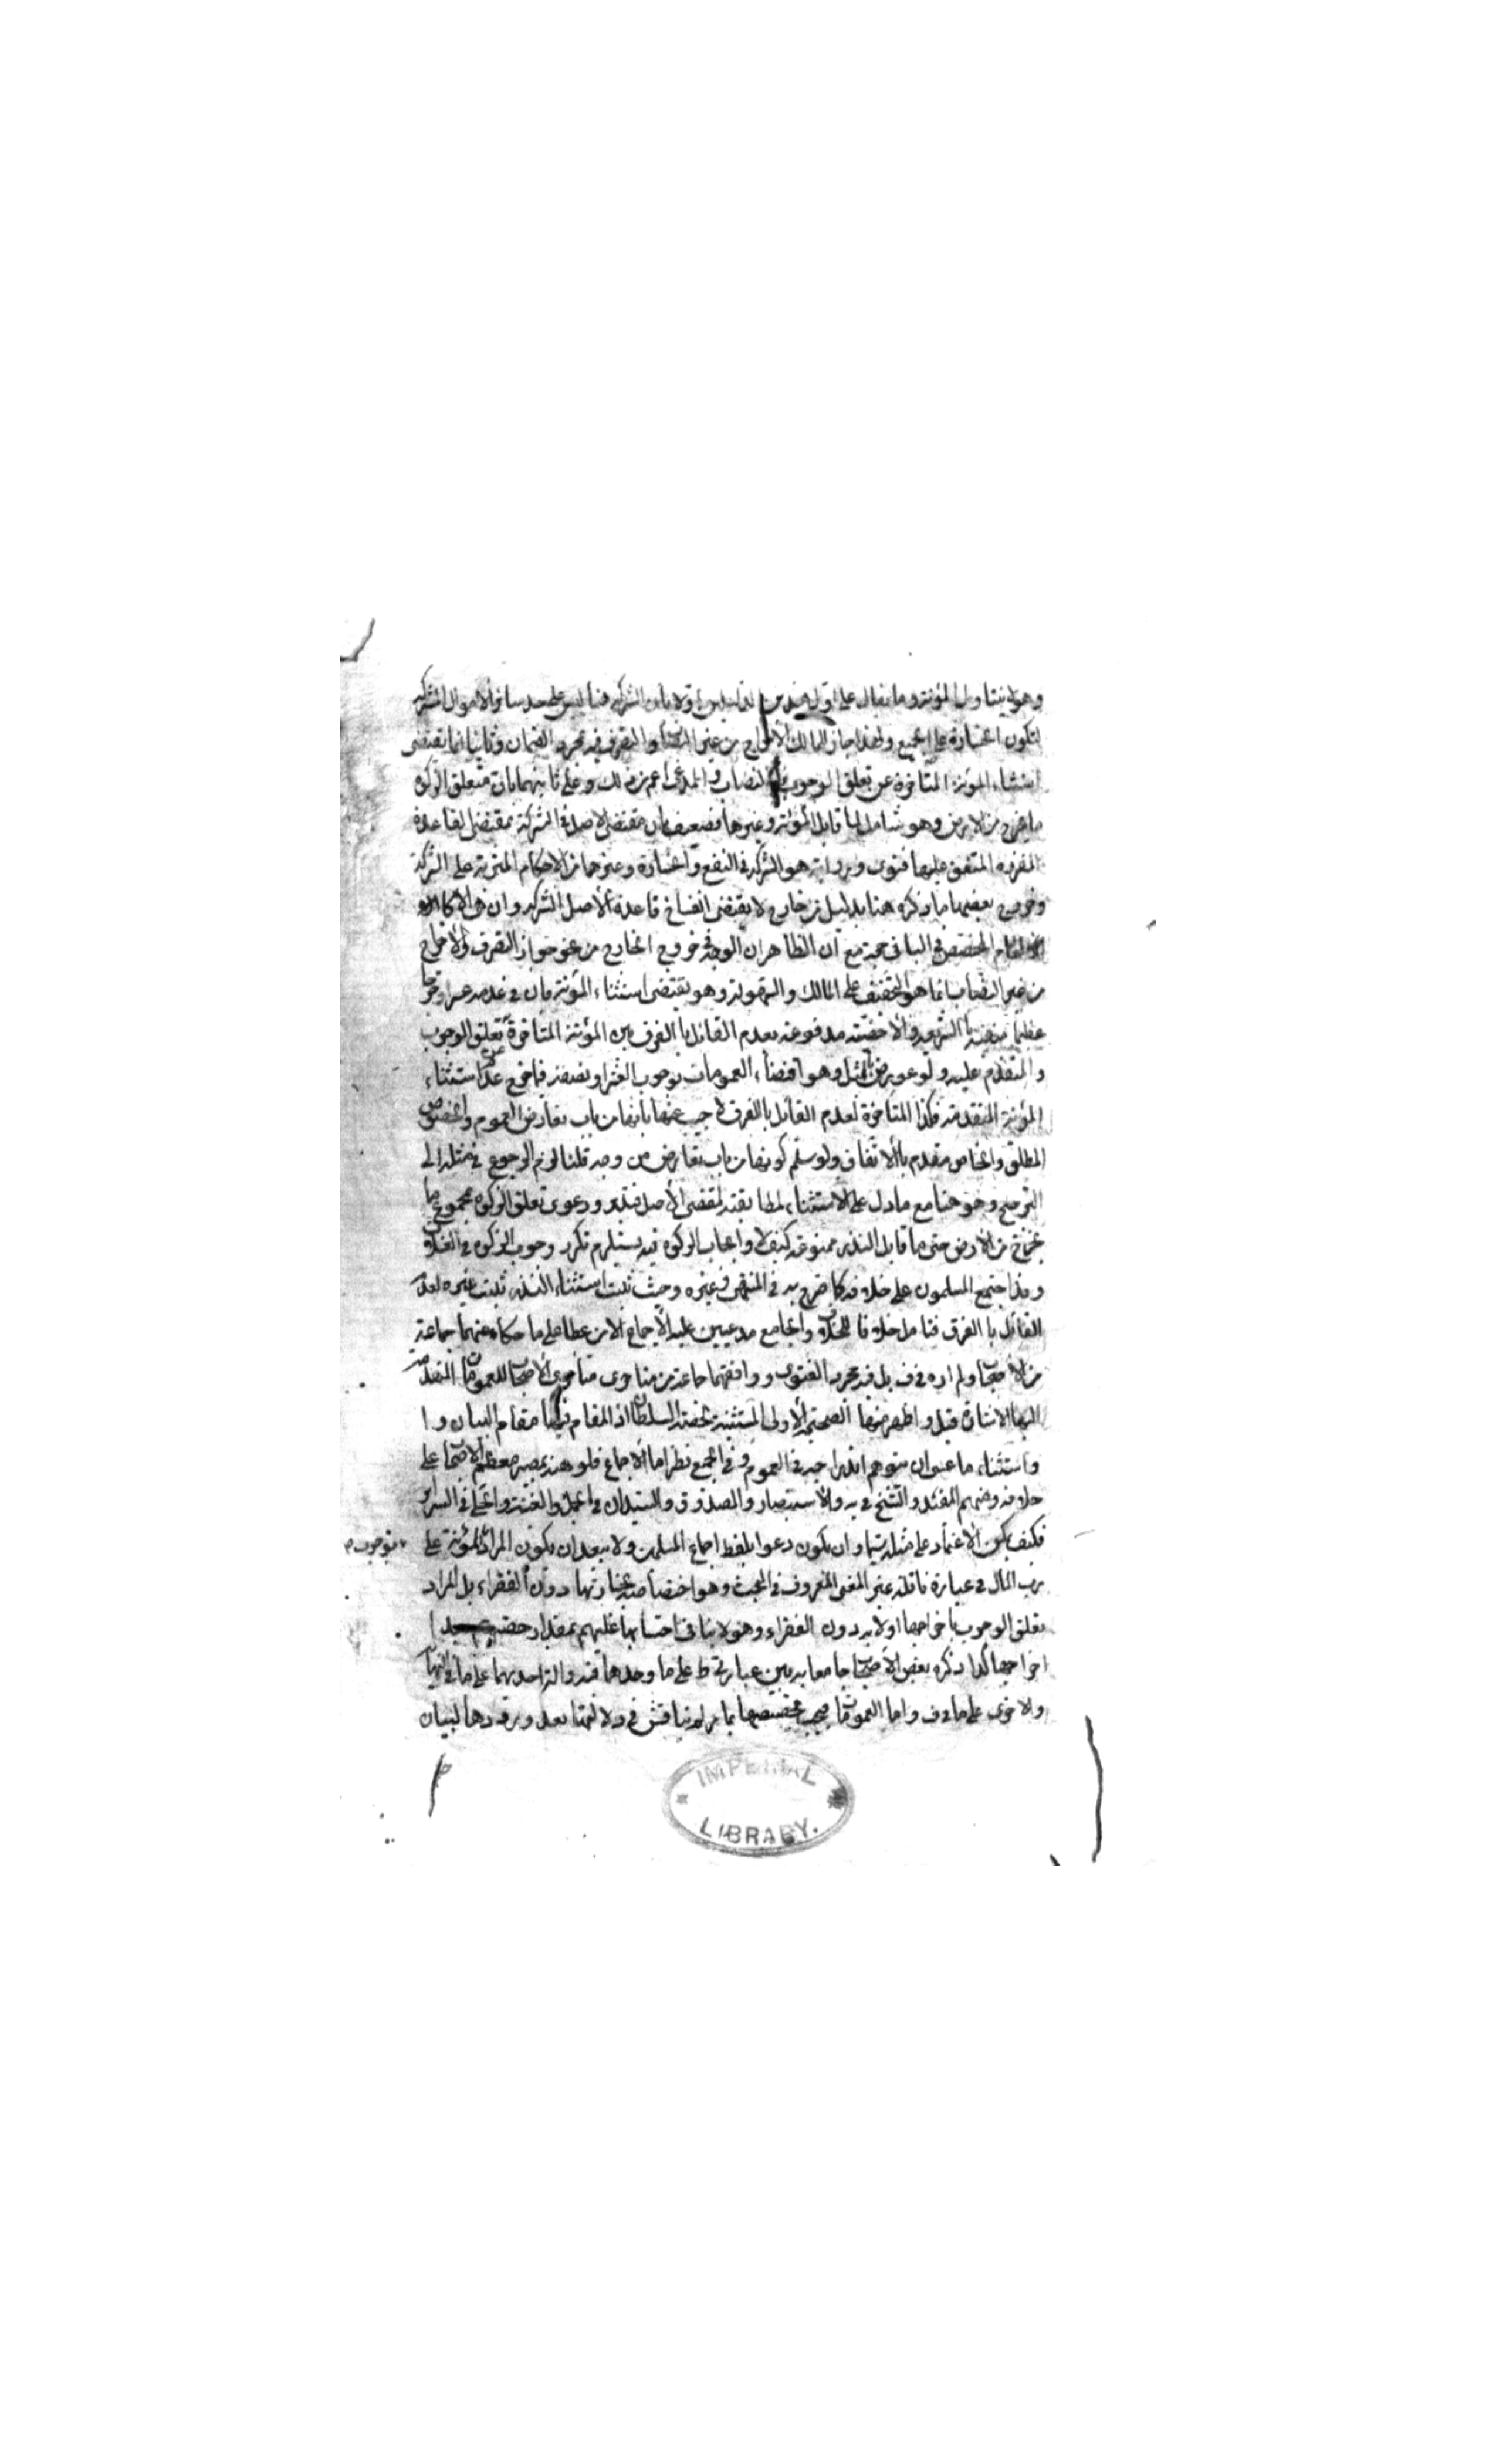 وهو لا يتناول المؤنة وما يقال على اول هذين الدليلين اولا بان الشركة هنا ليس على حد سائر الاموال المشتركة
لتكون الخسارة على الجميع ولهذا جاز للمالك الاخراج من غير النصاب والتصرف فيه بمجرد الضمان وثانيا انما يقتضى
استثناء المؤنة المتاخرة عن تعلق الوجوب بالنصاب والمدعى اعم من ذلك وعلى ثانيهما بان متعلق الزكوة
ما يخرج من الارض وهو شامل لما قابل المؤنة وغيرها فضعيف بان مقتضى الاصل فى الشركة بمقتضى القاعدة
المقررة المتفق عليها فتوى ورواية هو الشركة فى النفع والخسارة وغيرهما من الاحكام المترتبة على الشركة
وخروج بعضها ما ذكره هنا بدليل من خارج لا يقتضى انفساخ قاعدة الاصل الشركة وان هى الا كالعام
المخصص فى الباقى حجة مع ان الظاهر ان الوجه فى خروج الخارج من نحو جواز التصرف والاخراج
من غير النصاب انما هو التخفيف على المالك والسهولة وهو يقتضى استثناء المؤنة فان فى عدمه عسرا وحرجا
عظيما والاخصية مدفوعة بعدم القائل بالفرق بين المؤنة المتاخرة عن تعلق الوجوب
والمتقدم عليه ولو عورض بالمثل وهو اقتضاء العمومات بوجوب العشر او نصفه فيما خرج عدم استثناء
المؤنة المتقدمة فكذا المتاخرة لعدم القائل بالفرق اجيب عنها بانها من باب تعارض العموم والخصوص
المطلق والخاص مقدم بالاتفاق ولو سلم كونها من باب تعارض من وجه قلنا لزم الرجوع فى مثله الى
الترجيح وهو هنا مع ما دل على الاستثناء لمطابقته لمقتضى الاصل فتدبر ودعوى تعلق الزكوة بمجموع ما
يخرج من الارض حتى ما قابل البذر ممنوعة كيف لا وايجاب الزكوة فيه يستلزم تكرر وجوب الزكوة فى الغلات
وقد اجتمع المسلمون على خلافه كما صرح به فى المنتهى وغيره وحيث ثبت استثناء البذر ثبت غيره لعدم
القائل بالفرق فتامل خلافا للخلاف والجامع مدعيين عليه الاجماع الا من عطا على ما حكاه عنهما جماعة
من الاصحاب ولم اره فى ف بل فيه مجرد الفتوى ووافقهما جماعة من متاخرى متاخرى الاصحاب للعمومات المتقدمة
اليها الاشارة قبل واظهر منها الصحيحة الاولى المستثنية لحصة السلطان اذ المقام فيها مقام البيان و
واستثناء ما عسى ان يتوهم اندراجه فى العموم وفى الجميع نظر اما الاجماع فلوهنه بمصير معظم الاصحاب على
خلافه ومنهم المفيد والشيخ فى يه والاستبصار والصدوق والسيدان فى الجمل والغنية والحلى فى السرائر
فكيف يمكن الاعتماد على مثله سيما وان يكون دعواه بلفظ اجماع المسلمين ولا يبعد ان يكون المراد للمؤنة على
بوجوب
رب المال فى عبارة ناقله غير المعنى المعروف فى المبحث وهو اختصاصه بخسارتها دون الفقراء بل المراد
تعلق الوجوب باخراجها اولا به دون الفقراء وهو لا ينافى احتسابها عليهم بمقدار حصتهم بعد
اخراجها كذا ذكره بعض الاصحاب جامعا به بين عبارتى ط على ما وجدهما فيه والتزاحم بهما على ما فى النهاية
والاخرى على ما فى ف واما العمومات فيجب تخصيصها بما مر لو لم نناقش فى دلالتها بعد ورودها لبيان
IMPERIAL
LIBRARY.